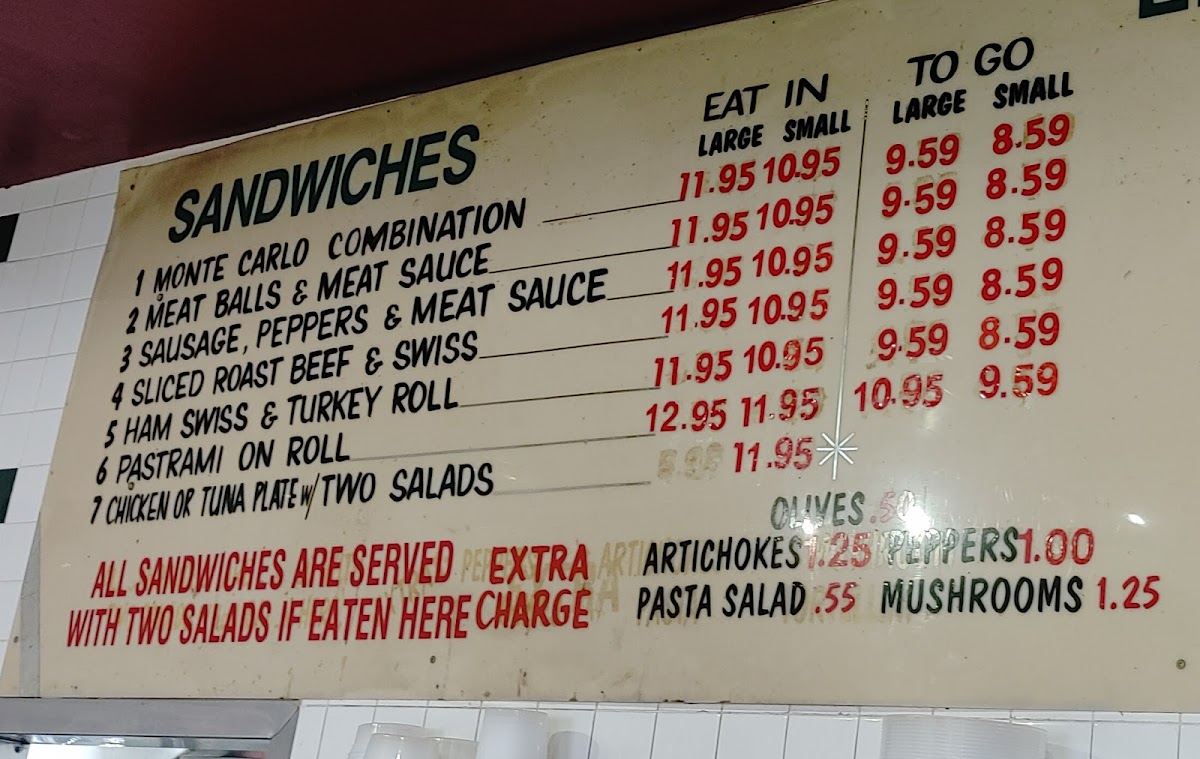 SANDWICHES
EAT IN TO GO
LARGE SMALL LARGE SMALL
1 MONTE CARLO COMBINATION 11.95 10.95 9.59 8.59
2 MEAT BALLS & MEAT SAUCE 11.95 10.95 9.59 8.59
3 SAUSAGE, PEPPERS & MEAT SAUCE 11.95 10.95 9.59 8.59
4 SLICED ROAST BEEF & SWISS 11.95 10.95 9.59 8.59
5 HAM SWISS & TURKEY ROLL 11.95 10.95 9.59 8.59
6 PASTRAMI ON ROLL 12.95 11.95 10.95 9.59
7 CHICKEN OR TUNA PLATE w/ TWO SALADS 11.95
OLIVES .50
ALL SANDWICHES ARE SERVED EXTRA ARTICHOKES 1.25 PEPPERS 1.00
WITH TWO SALADS IF EATEN HERE CHARGE PASTA SALAD .55 MUSHROOMS 1.25